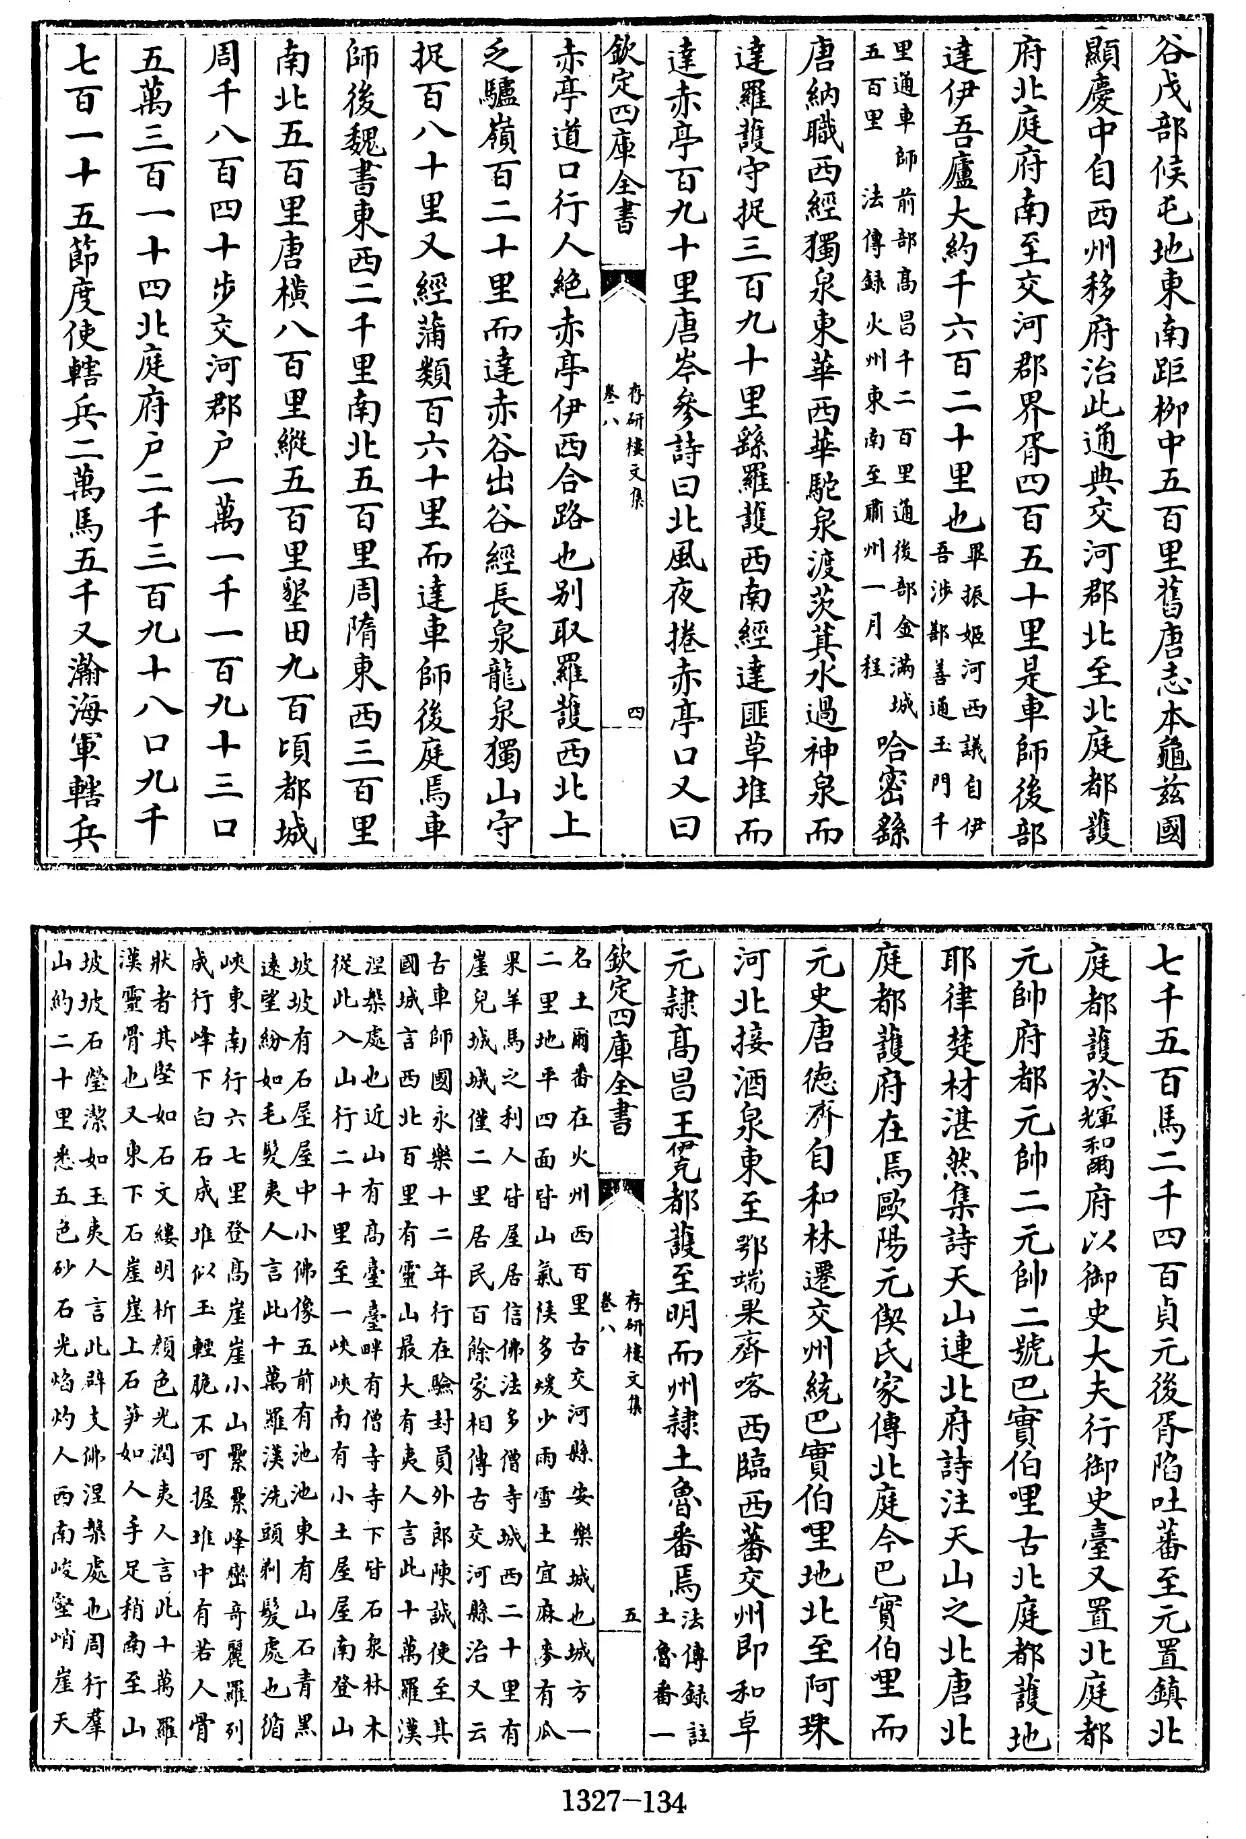 谷戊部候屯地東南距柳中五百里舊唐志本龜兹國
顯慶中自西州移府治此通典交河郡北至北庭都護
府北庭府南至交河郡界胥四百五十里是車師後部
達伊吾廬大約千六百二十里也畢振姬河西議自伊
吾涉鄯善通玉門千
里通車師前部高昌千二百里通後部金滿城
五百里 法傳錄火州東南至肅州一月程
哈密繇
唐納職西經獨泉東華西華駝泉渡茨萁水過神泉而
達羅護守捉三百九十里繇羅護西南經達匪草堆而
達赤亭百九十里唐岑參詩曰北風夜捲赤亭口又曰
欽定四庫全書
存研樓文集
卷八
四
赤亭道口行人絕赤亭伊西合路也别取羅護西北上
乏驢嶺百二十里而達赤谷出谷經長泉龍泉獨山守
捉百八十里又經蒲類百六十里而達車師後庭焉車
師後魏書東西二千里南北五百里周隋東西三百里
南北五百里唐横八百里縱五百里墾田九百頃都城
周千八百四十步交河郡户一萬一千一百九十三口
五萬三百一十四北庭府户二千三百九十八口九千
七百一十五節度使轄兵二萬馬五千又瀚海軍轄兵
七千五百馬二千四百貞元後胥陷吐蕃至元置鎮北
庭都護於輝和爾府以御史大夫行御史臺又置北庭都
元帥府都元帥二元帥二號巴實伯哩古北庭都護地
耶律楚材湛然集詩天山連北府詩注天山之北唐北
庭都護府在焉歐陽元偰氏家傳北庭今巴實伯哩而
元史唐德齊自和林遷交州統巴實伯哩地北至阿珠
河北接酒泉東至鄂端果齊喀西臨西蕃交州即和卓
元隷高昌王伊克都護至明而州隷土魯番焉法傳錄註
土魯番一
欽定四庫全書
存研樓文集
卷八
五
名土爾番在火州西百里古交河縣安樂城也城方一
二里地平四面皆山氣候多煖少雨雪土宜麻麥有瓜
果羊馬之利人皆屋居信佛法多僧寺城西二十里有
崖兒城城僅二里居民百餘家相傳古交河縣治又云
古車師國永樂十二年行在驗封員外郎陳誠使至其
國城言西北百里有靈山最大有夷人言此十萬羅漢
涅槃處也近山有高臺臺畔有僧寺寺下皆石泉林木
從此入山行二十里至一峽峽南有小土屋屋南登山
坡坡有石屋屋中小佛像五前有池池東有山石青黑
遠望紛如毛髮夷人言此十萬羅漢洗頭剃髮處也循
峽東南行六七里登高崖崖小山纍纍峰巒奇麗羅列
成行峰下白石成堆似玉輕脆不可握堆中有若人骨
狀者其堅如石文縷明析顏色光潤夷人言此十萬羅
漢靈骨也又東下石崖崖上石笋如人手足稍南至山
坡坡石瑩潔如玉夷人言此辟支佛涅槃處也周行羣
山約二十里悉五色砂石光焰灼人西南峻壑峭崖天
1327-134